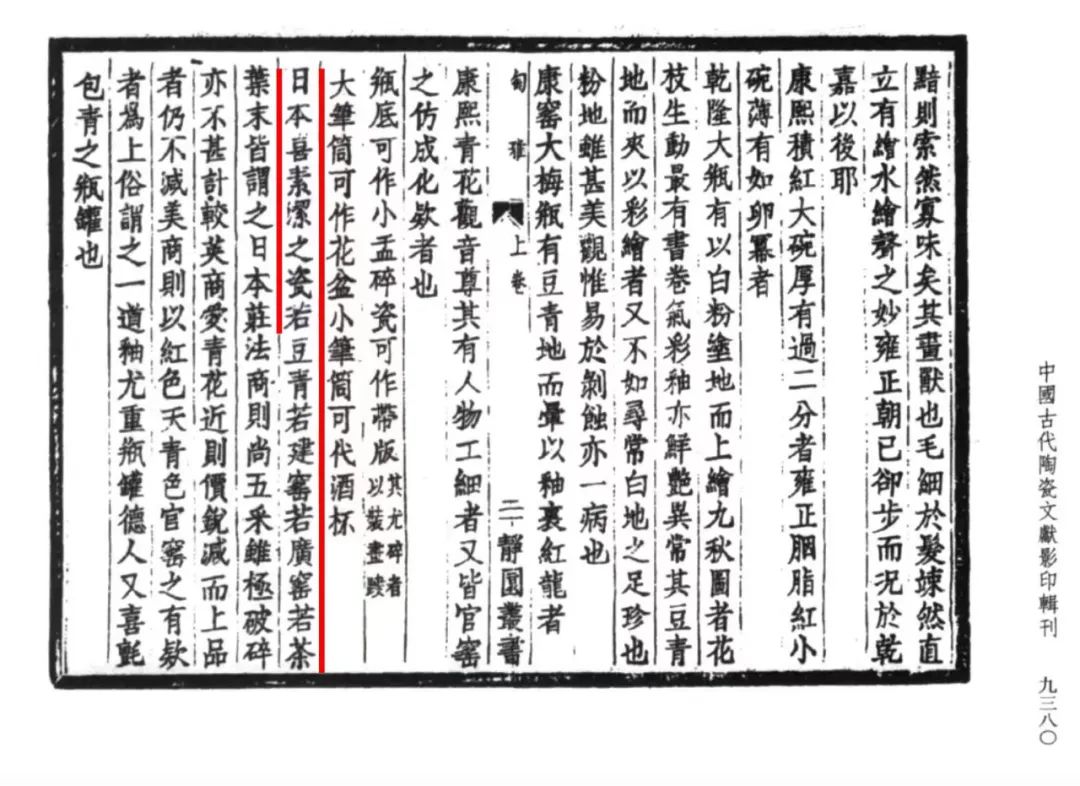 黯則索然寡味矣其畫獸也毛細於髮竦然直
立有繪水繪聲之妙雍正朝已卻步而況於乾
嘉以後耶
康熙積紅大碗厚有過二分者雍正胭脂紅小
碗薄有如卵冪者
乾隆大瓶有以白粉塗地而上繪九秋圖者花
枝生動最有書卷氣彩釉亦鮮艷異常其豆青
地而夾以彩繪者又不如尋常白地之足珍也
粉地雖甚美觀惟易於剝蝕亦一病也
康窰大梅瓶有豆青地而暈以釉裏紅龍者
匋雅 上卷 二 靜園叢書
康熙青花觀音尊其有人物工細者又皆官窰
之仿成化欵者也
瓶底可作小盂碎瓷可作帶版其尤碎者以裝畫
大筆筒可作花盆小筆筒可代酒杯
日本喜素潔之瓷若豆青若建窰若廣窰若茶
葉末皆謂之日本莊法商則尚五釆雖極破碎
亦不甚計較英商愛青花近則價銳減而上品
者仍不減美商則以紅色天青色官窰之有欵
者為上俗謂之一道釉尤重瓶罐德人又喜氈
包青之瓶罐也
中國古代陶瓷文獻影印輯刊 九三八〇